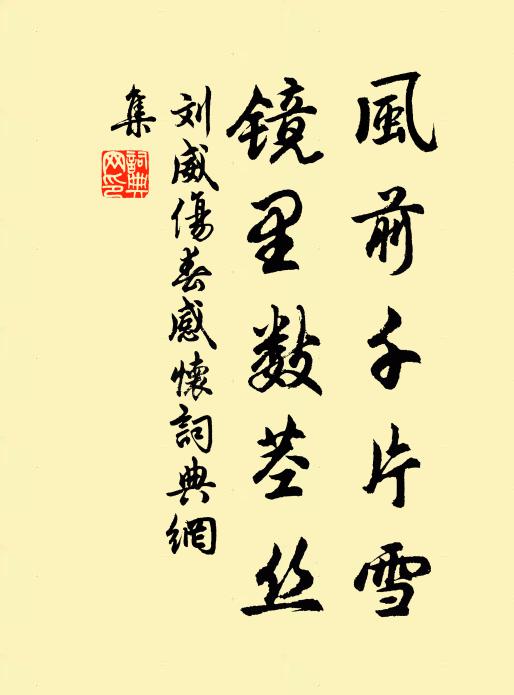 風前千片雪
镜里数茎丝
刘威傷春感懷詞典網
集
詞典网印